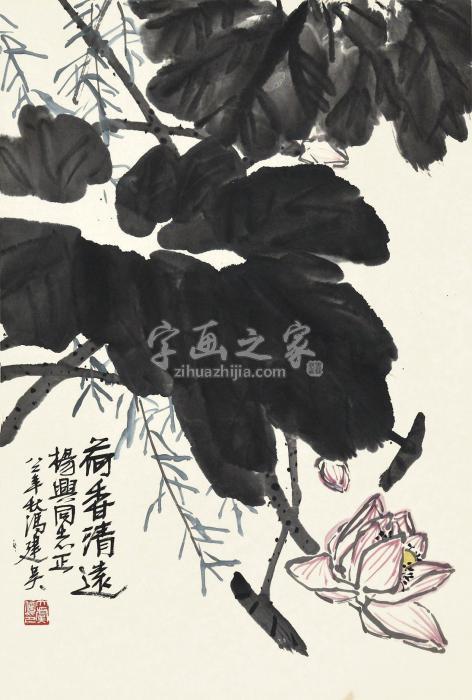 荷香清遠
楊興同志正
八三年秋馮建吳
字画之家
zihuazhijia.com